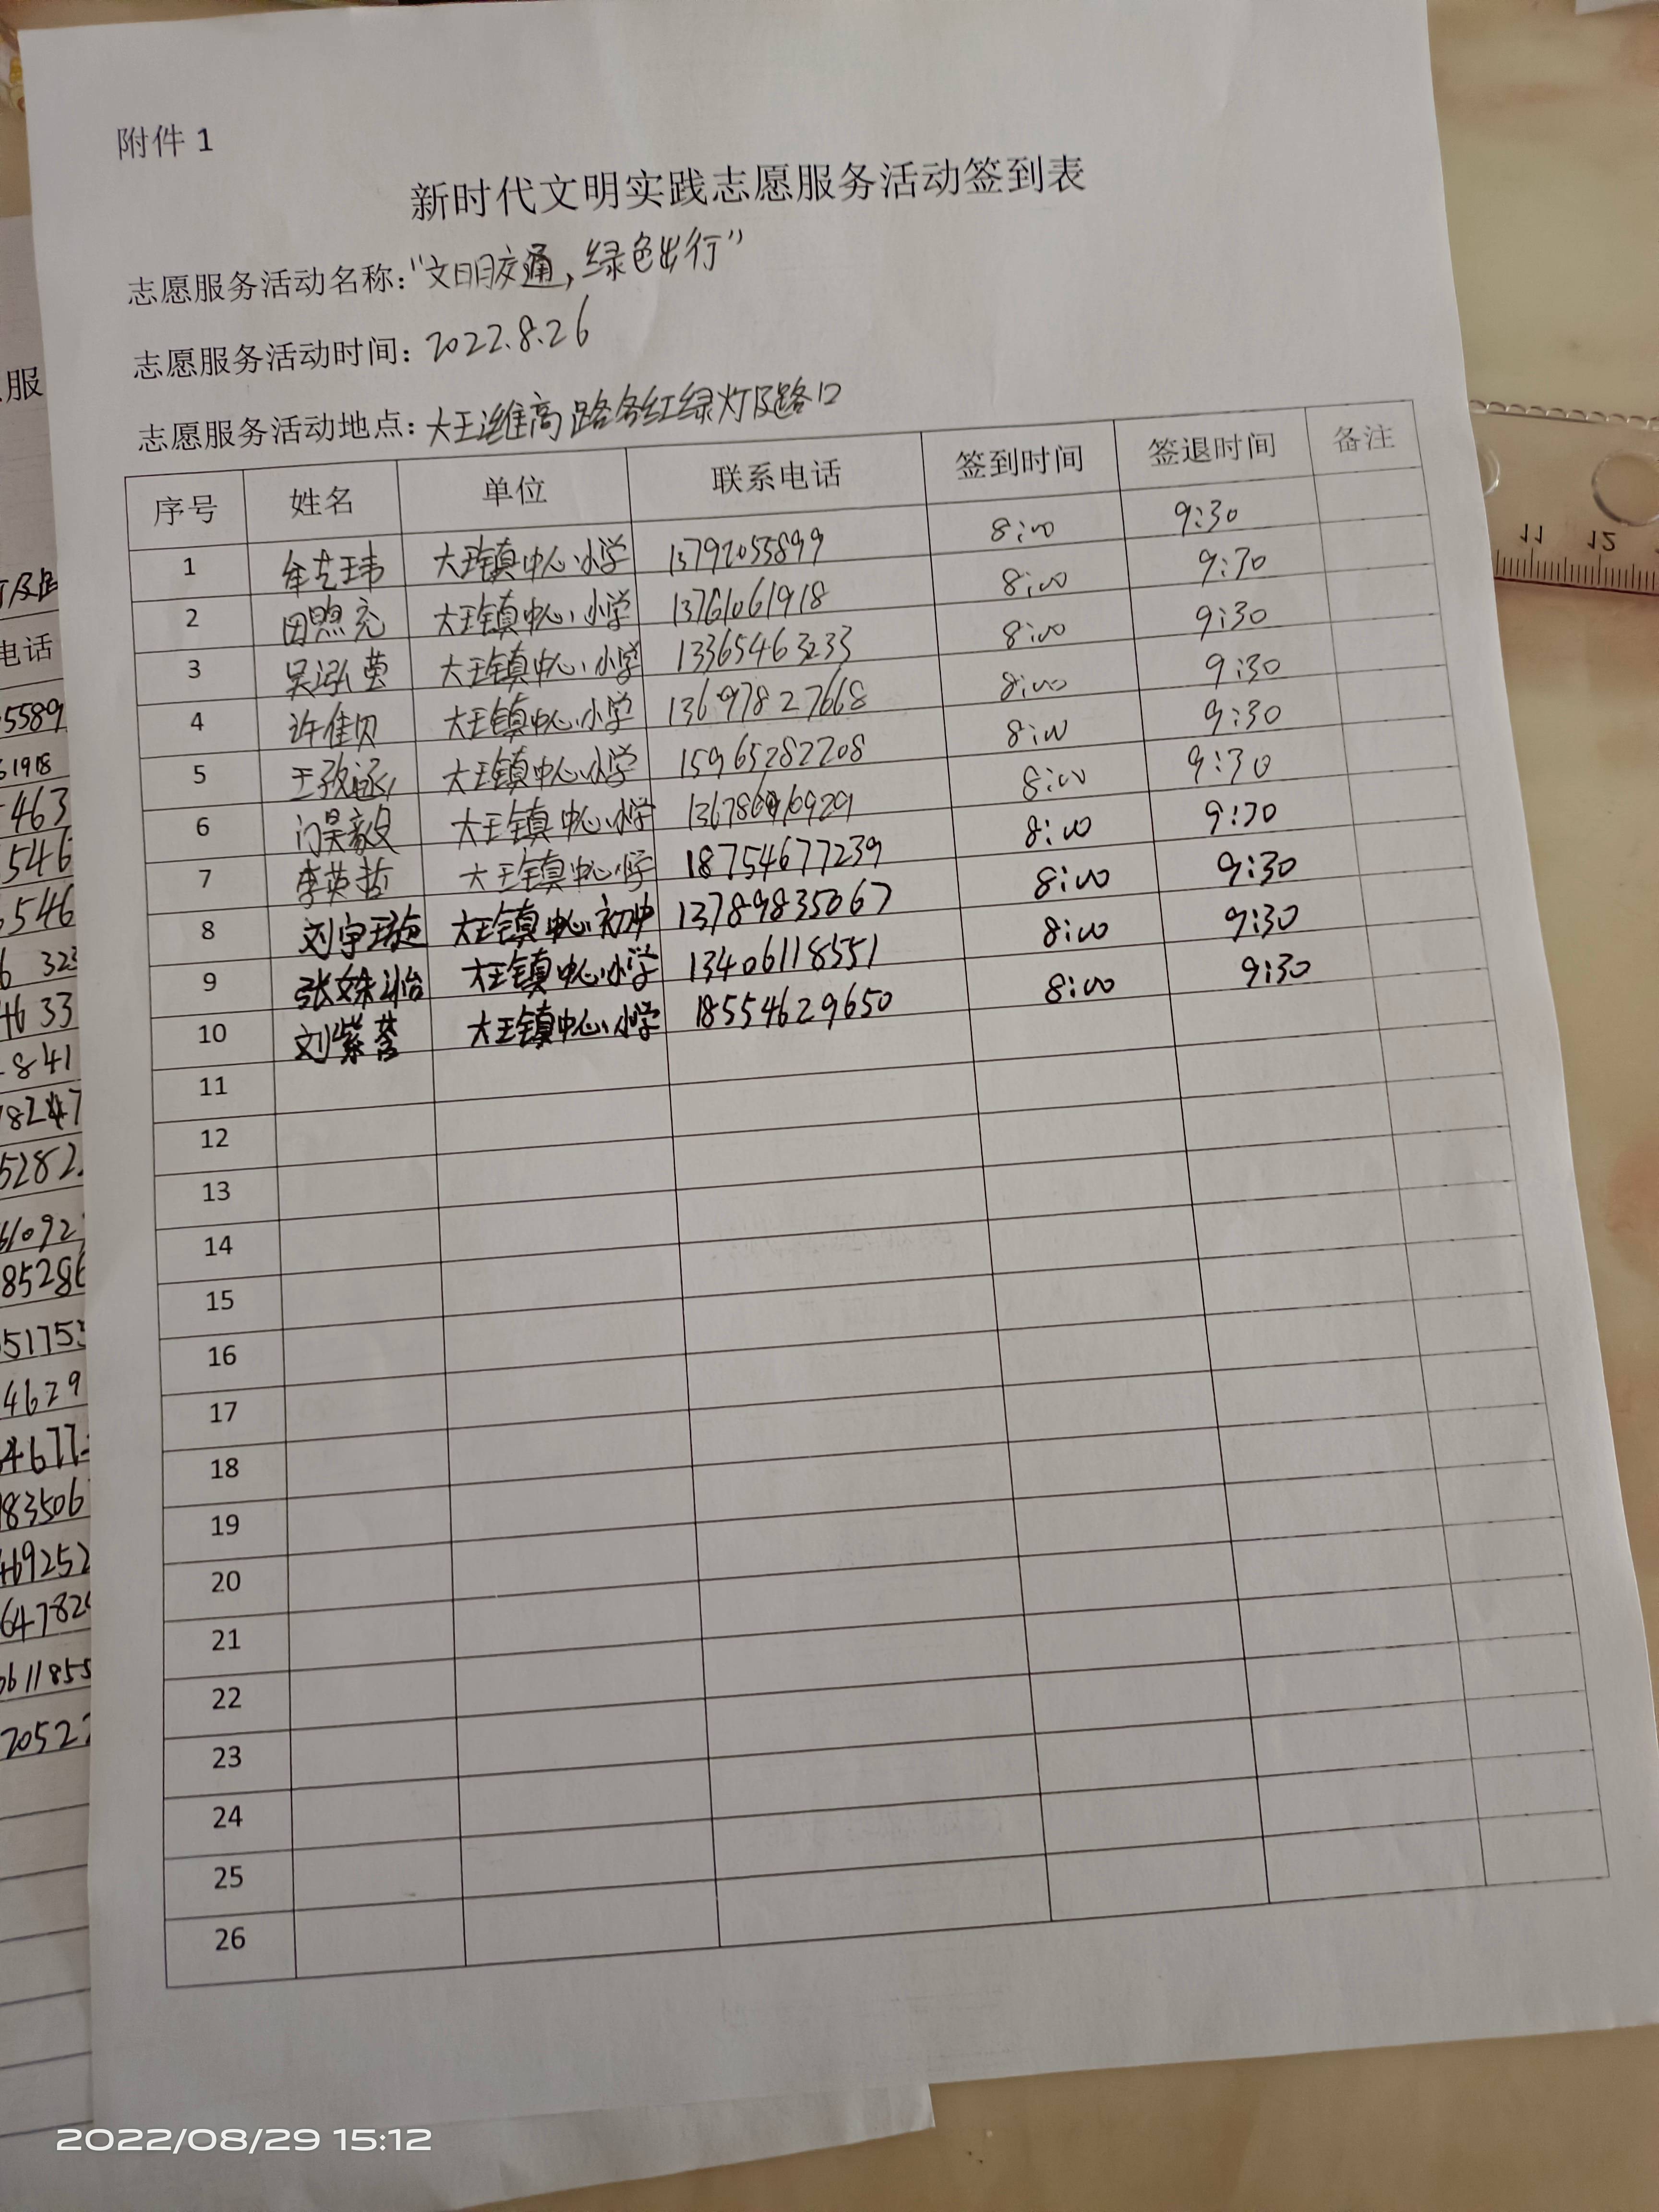 附件 1
新时代文明实践志愿服务活动签到表
志愿服务活动名称：“文明交通，绿色出行”
志愿服务活动时间：2022.8.26
志愿服务活动地点：大王潍高路各红绿灯及路口
序号 姓名 单位 联系电话 签到时间 签退时间 备注
1 牟芝玮 大王镇中心小学 13792055899 8:00 9:30
2 田照充 大王镇中心小学 13761061918 8:00 9:30
3 吴泓莹 大王镇中心小学 13365463233 8:00 9:30
4 许佳贝 大王镇中心小学 13697827668 8:00 9:30
5 王孜涵 大王镇中心小学 15965282208 8:00 9:30
6 门昊毅 大王镇中心小学 8:00 9:30
7 李英哲 大王镇中心小学 18754677239 8:00 9:30
8 刘宇璇 大王镇中心初中 13789835067 8:00 9:30
9 张姝怡 大王镇中心小学 13406118551 8:00 9:30
10 刘紫萱 大王镇中心小学 18554629650 8:00 9:30
11
12
13
14
15
16
17
18
19
20
21
22
23
24
25
26
服
电话
5589
61918
463
546
6546
6 323
4633
841
5282
61092
85286
5175
4629
4677
83506
469252
64782
0611855
2052
11 12
2022/08/29 15:12